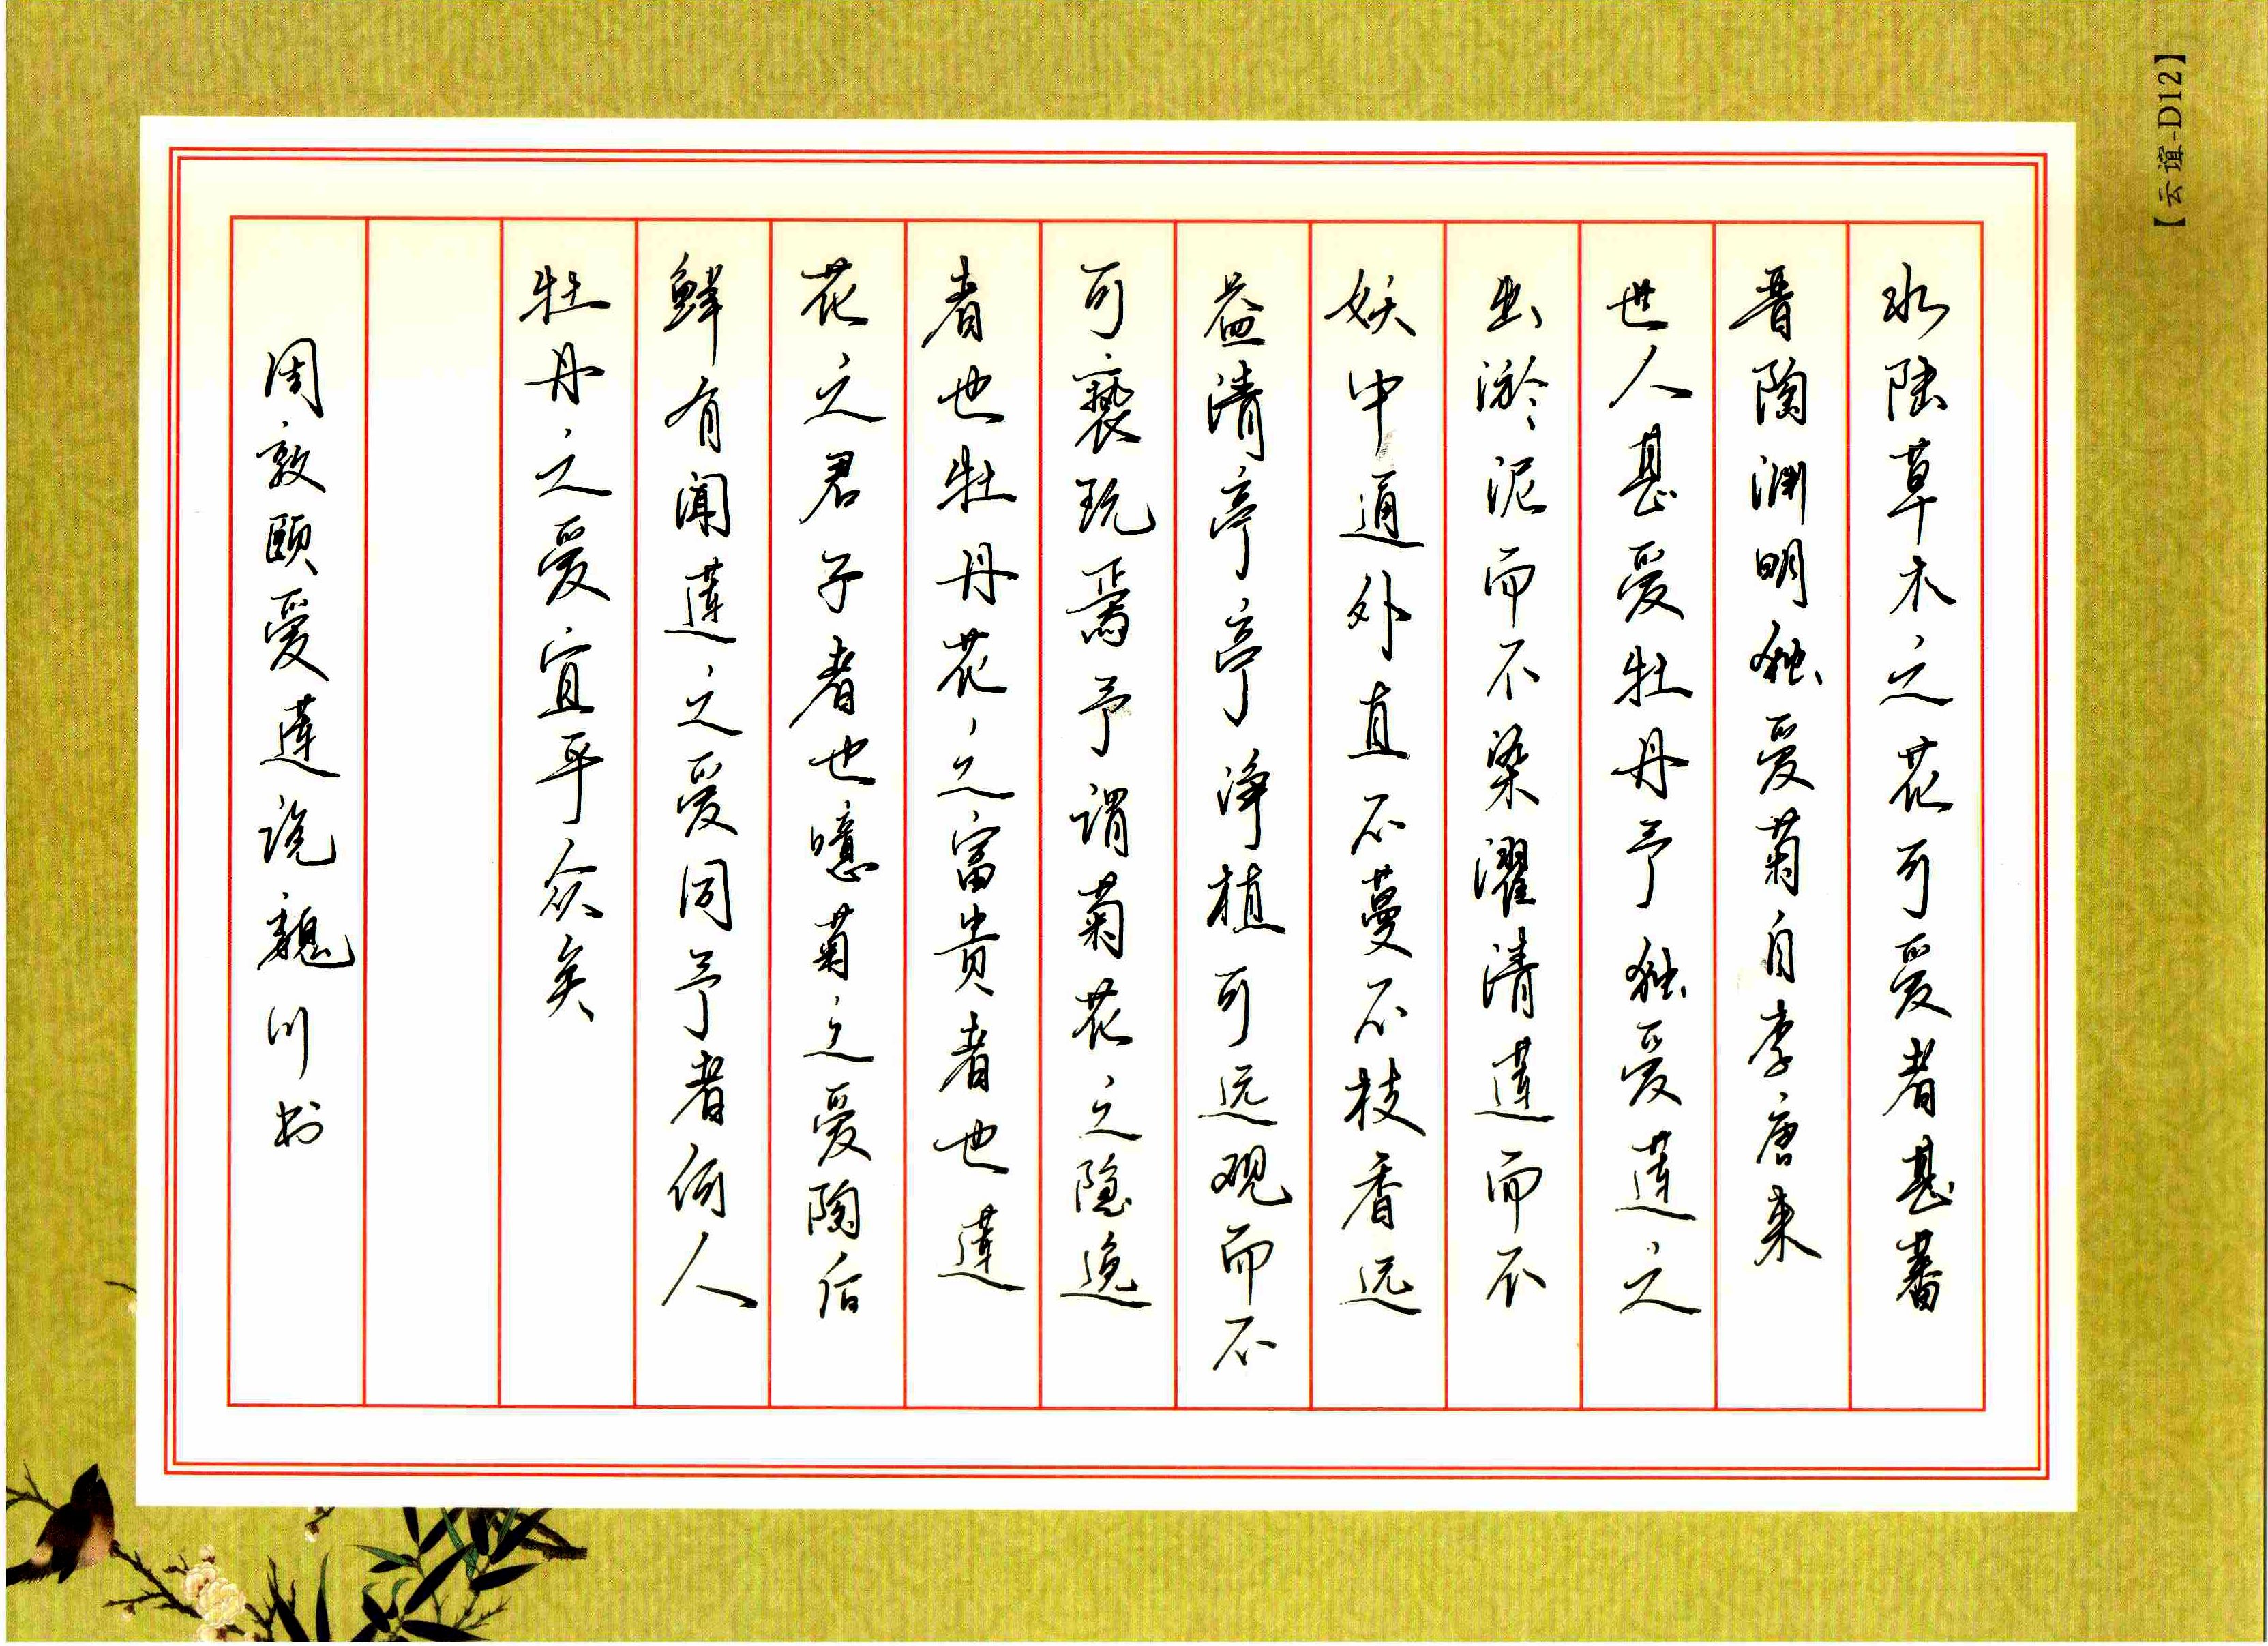 水陆草木之花可爱者甚蕃
晋陶渊明独爱菊自李唐来
世人甚爱牡丹予独爱莲之
出淤泥而不染濯清莲而不
妖中通外直不蔓不枝香远
益清亭亭净植可远观而不
可亵玩焉予谓菊花之隐逸
者也牡丹花之富贵者也莲
花之君子者也噫菊之爱陶后
鲜有闻莲之爱同予者何人
牡丹之爱宜乎众矣
周敦颐爱莲说魏川书
【云谊-D12】